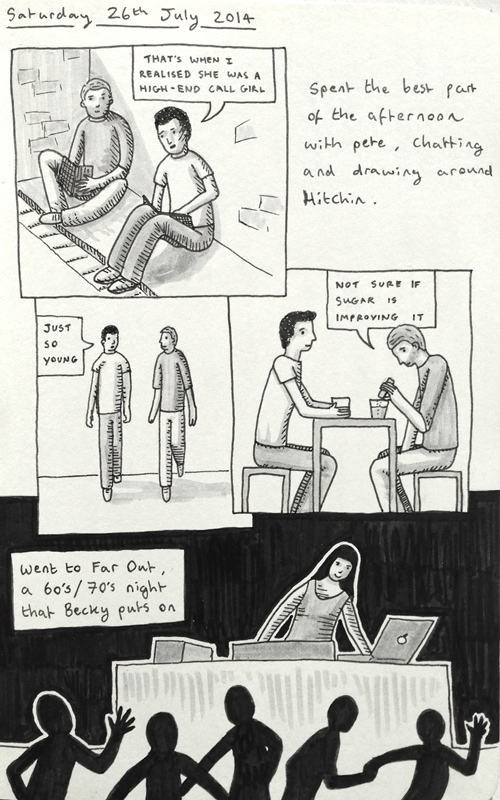 Saturday 26th July 2014
THAT'S WHEN I
REALISED SHE WAS A
HIGH-END CALL GIRL
Spent the best part
of the afternoon
with pete, chatting
and drawing around
Hitchin.
JUST
SO
YOUNG
NOT SURE IF
SUGAR IS
IMPROVING IT
Went to Far Out,
a 60's/70's night
that Becky puts on